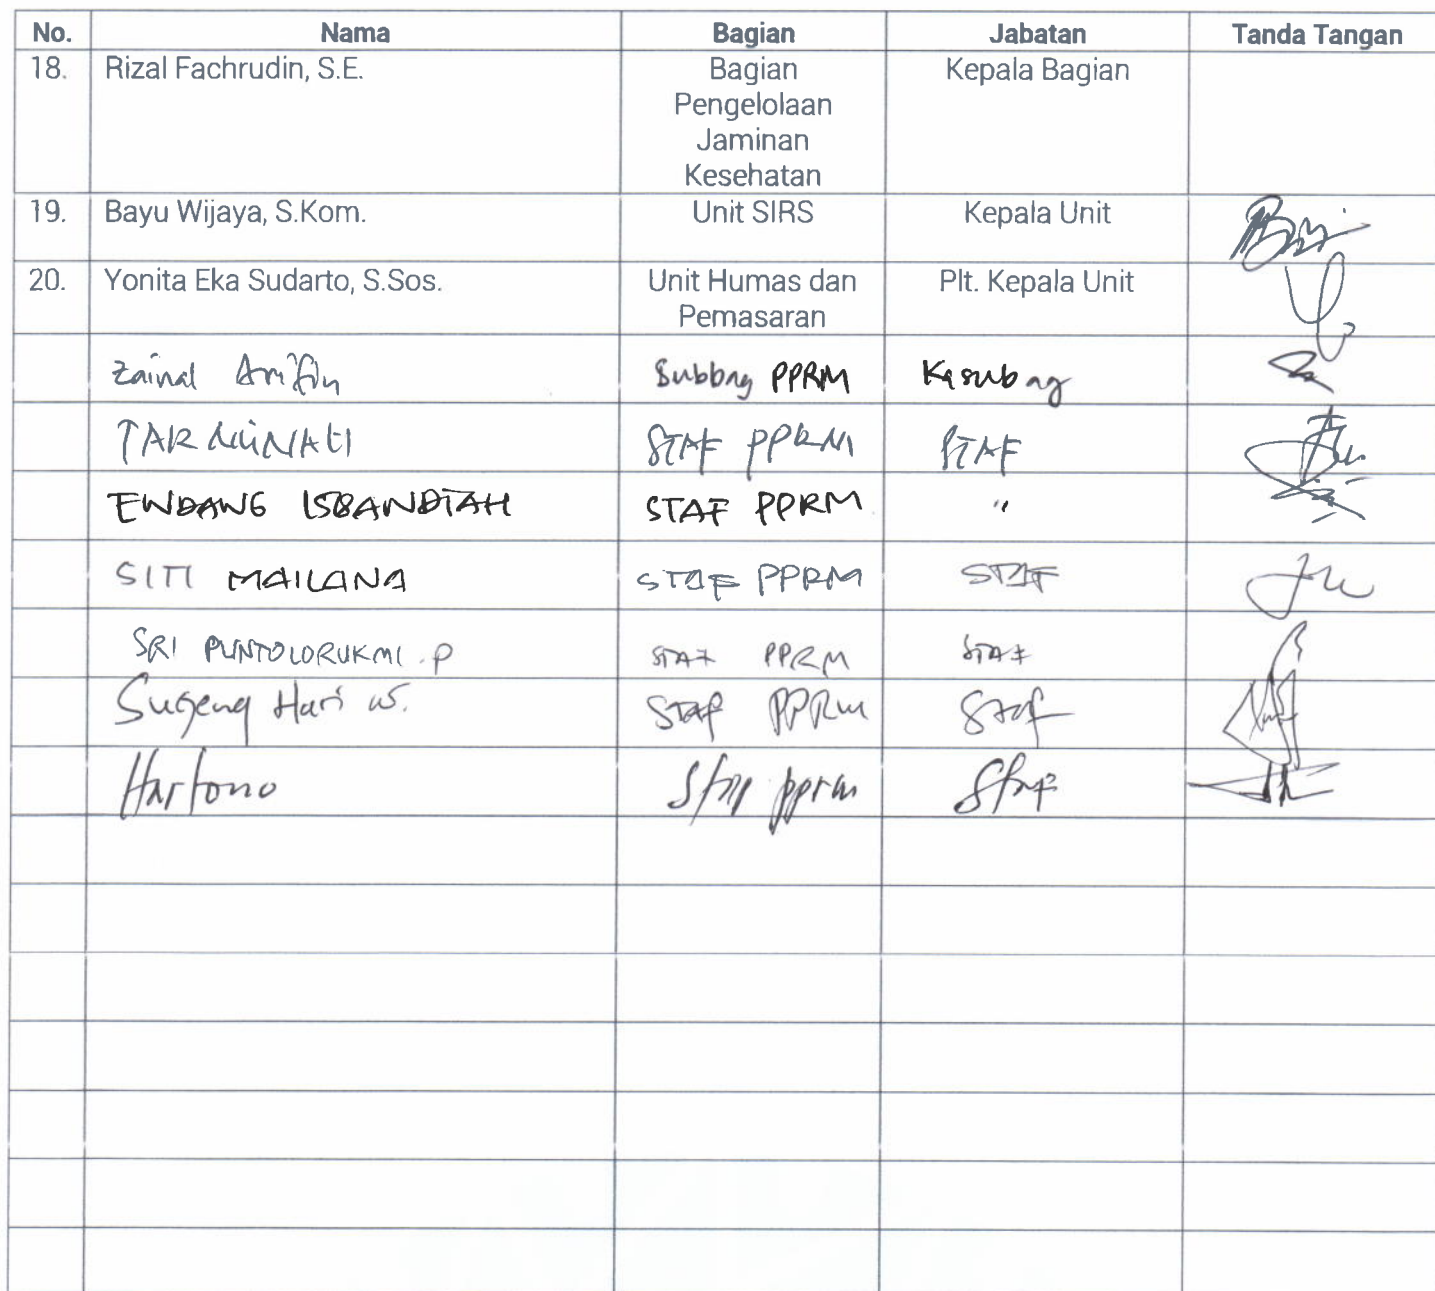 No. Nama Bagian Jabatan Tanda Tangan
18. Rizal Fachrudin, S.E. Bagian Kepala Bagian
Pengelolaan
Jaminan
Kesehatan
19. Bayu Wijaya, S.Kom. Unit SIRS Kepala Unit
20. Yonita Eka Sudarto, S.Sos. Unit Humas dan Plt. Kepala Unit
Pemasaran
Zainal Arifin Subbag PPRM Kasubag
TARMINATI STAF PPRM STAF
ENDANG ISBANDIAH STAF PPRM "
SITI MAILANA STAF PPRM STAF
SRI PUNTOLORUKMI . P STAF PPRM STAF
Sugeng Hari W. STAF PPRM Staf
Hartono Staf pprm Staf